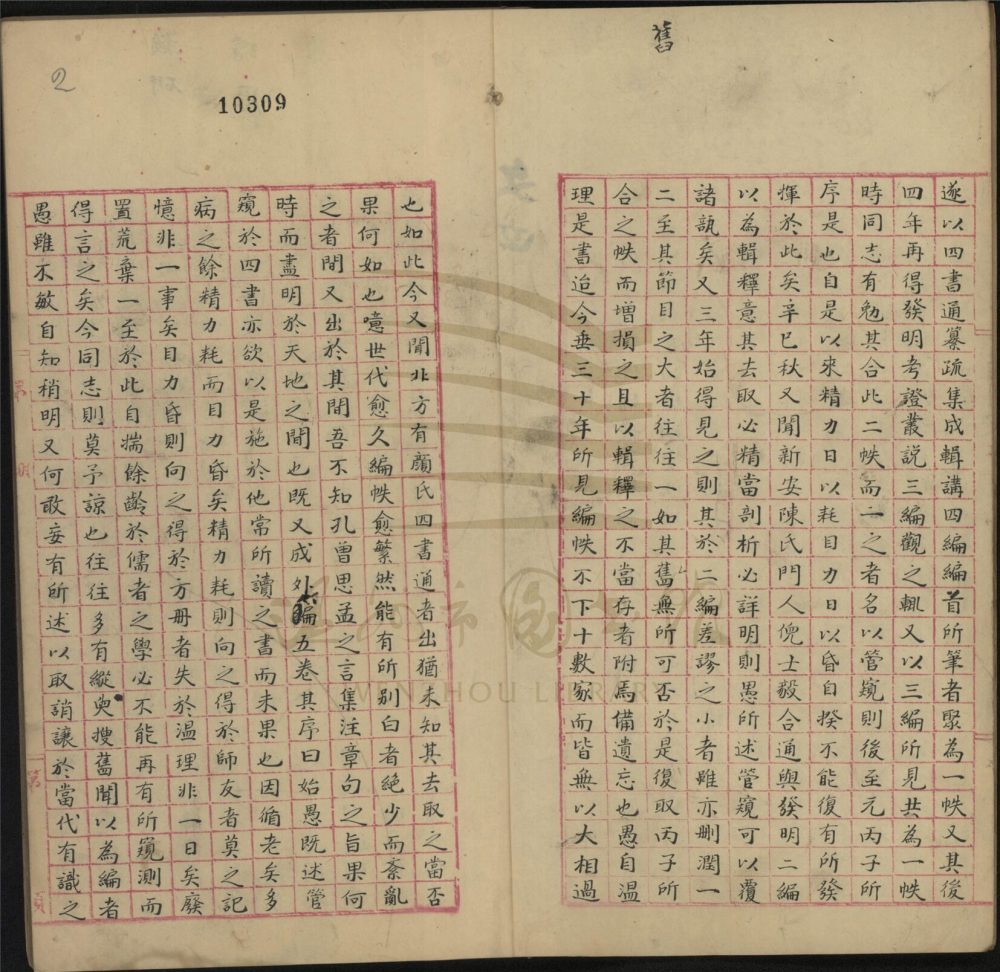 舊
遂以四書通纂疏集成輯講四編編首所筆者聚為一帙又其後
四年再得發明考證叢説三編觀之輒又以三編所見共為一帙
時同志有勉其合此二帙而一之者名以管窺則後至元丙子所
序是也自是以來精力日以耗目力日以昏自揆不能復有所發
揮於此矣辛巳秋又聞新安陳氏門人倪士毅合通與發明二編
以為輯釋意其去取必精當剖析必詳明則愚所述管窺可以覆
諸瓿矣又三年始得見之則其於二編差謬之小者雖亦刪潤一
二至其節目之大者往往一如其舊無所可否於是復取丙子所
合之帙而增損之且以輯釋之不當存者附焉備遺忘也愚自温
理是書迨今垂三十年所見編帙不下十數家而皆無以大相過
2
10309
也如此今又聞北方有顔氏四書通者出猶未知其去取之當否
果何如也噫世代愈久編帙愈繁然能有所别白者絶少而紊亂
之者間又出於其間吾不知孔曾思孟之言集注章句之旨果何
時而盡明於天地之間也既又成外編五卷其序曰始愚既述管
窺於四書亦欲以是施於他常所讀之書而未果也因循老矣多
病之餘精力耗而目力昏矣精力耗則向之得於師友者莫之記
憶非一事矣目力昏則向之得於方冊者失於温理非一日矣廢
置荒棄一至於此自揣餘齡於儒者之學必不能再有所窺測而
得言之矣今同志則莫予諒也往往多有縱臾搜舊聞以為編者
愚雖不敏自知稍明又何敢妄有所述以取誚讓於當代有識之
WENZHOU LIBRARY